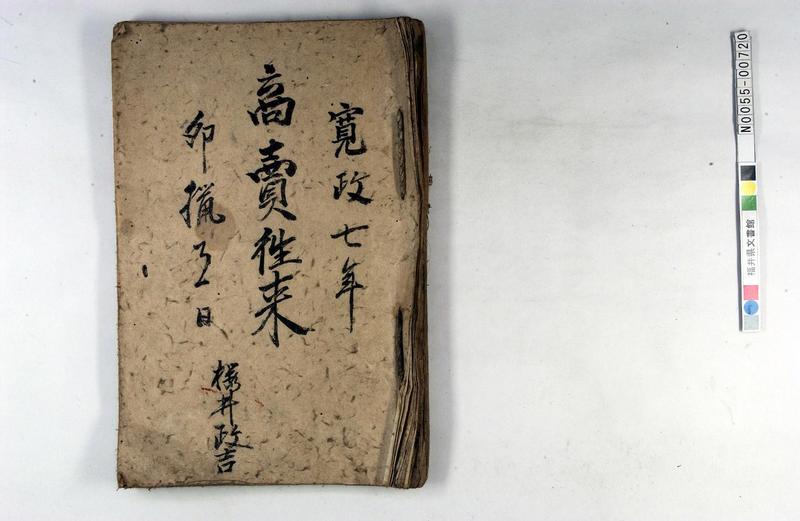 寛政七年
高賣徃来
卯猟五日
桜井政吉
N0055-00720
福井県文書館